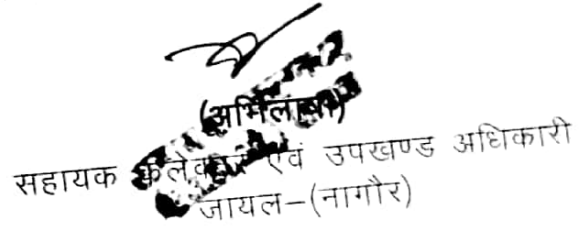 (अभिलाषा)
सहायक कलेक्टर एवं उपखण्ड अधिकारी
जायल-(नागौर)